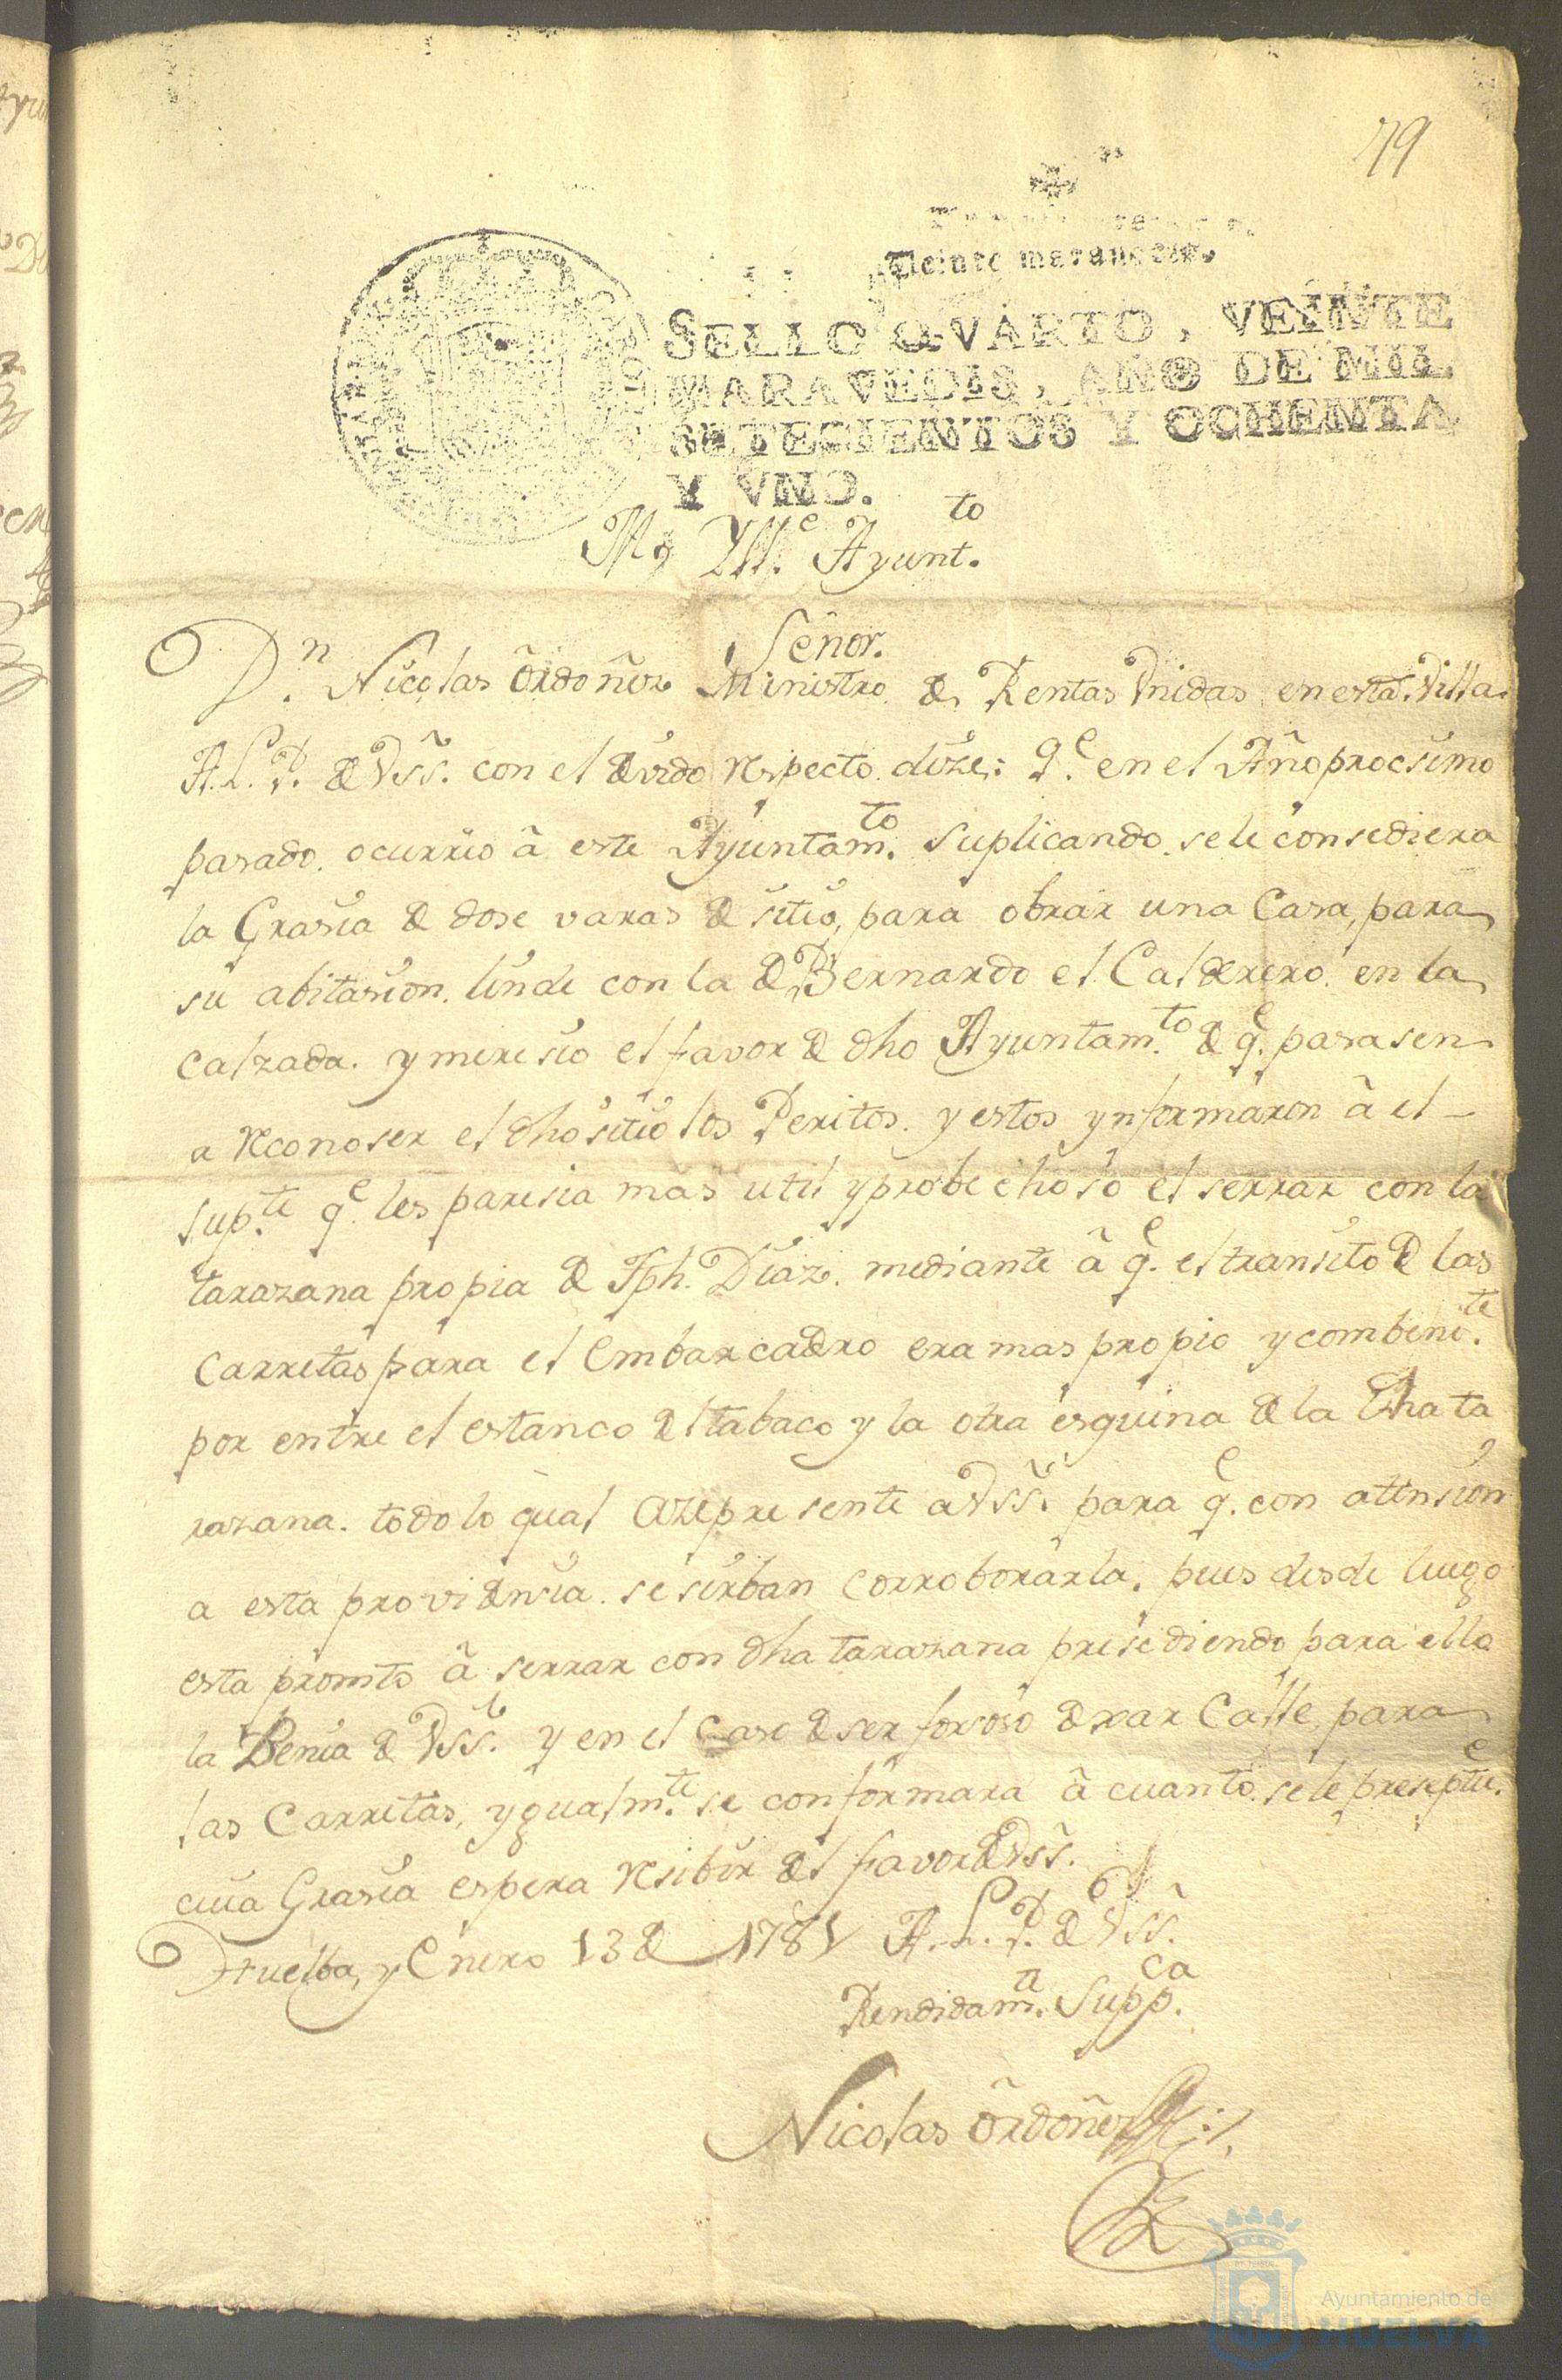 79
Veinte maravedis.
SELLO QVARTO, VEINTE
MARAVEDIS, AÑO DE MIL
SETECIENTOS Y OCHENTA
Y VNO.
M.y Yll.e Ayunt.to
Señor.
D.n Nicolas Ordoñez Ministro de Rentas Vnidas en esta Villa
A. L. P. de VSS. con el devido respecto dize: q.e en el Año procsimo
pasado ocurrio â este Ayuntam.to suplicando se le consediera
la Grasia de dose varas de sitio, para obrar una Casa, para
su abitasion linde con la de Bernardo el Calderero en la
Calzada. y meresio el favor de dho Ayuntam.to de q.e pasasen
a reconoser el dho sitio los Peritos. y estos ynformaron â el
sup.te q.e les paresia mas util y probechoso el serrar con la
tarazana propia de Jph. Diaz. mediante â q.e el transito de las
Carretas para el embarcadero era mas propio y combeni.te
por entre el estanco del tabaco y la otra esquina de la dha ta
razana. todo lo qual aze presente a VSS. para q.e con atension
a esta providensia se sirban corroborarla. pues desde luego
esta promto â serrar con dha tarazana presediendo para ello
la Benia de VSS. y en el caso de ser forsoso dexar Calle, para
las Carretas, ygualm.te se conformara â cuanto se le preseptue.
cuia Grasia espera resibir del favor de VSS.
Huelba, y Enero 13 de 1781 A. L. P. de VSS.
Rendidam.te Supp.ca
Nicolas Ordoñez
Ayuntamiento de
HUELVA